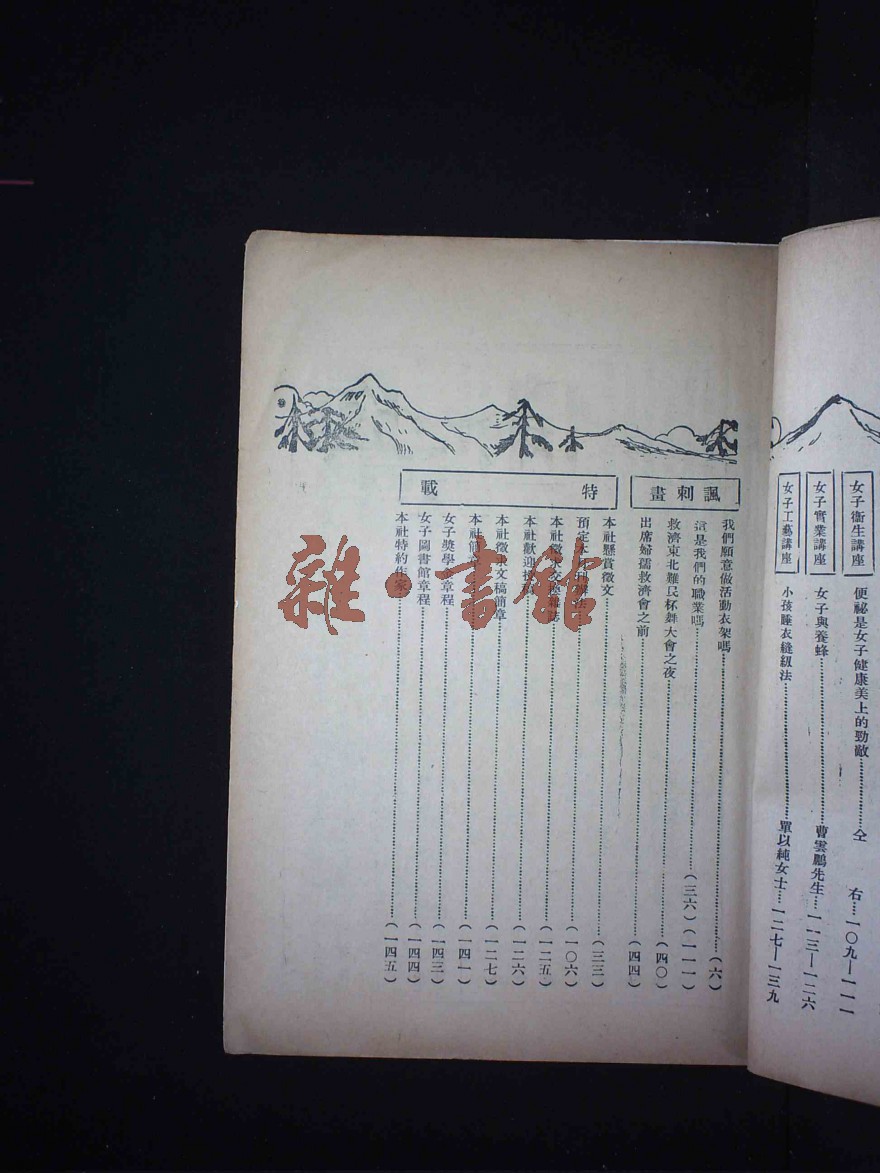 女子衞生講座
便祕是女子健康美上的勁敵……仝 右…一〇九—一一一
女子實業講座
女子與養蜂……曹雲鵬先生…一一三—一二六
女子工藝講座
小孩睡衣縫紉法……單以純女士…一二七—一三九
諷刺畫
我們願意做活動衣架嗎……(六)
這是我們的職業嗎……(三六)(一一一)
救濟東北難民杯舞大會之夜……(四〇)
出席婦孺救濟會之前……(四四)
特載
本社懸賞徵文……(三三)
預定本月刊辦法……(一〇六)
本社徵求交換雜誌……(一二五)
本社歡迎投……(一二六)
本社徵求文稿簡章……(一二七)
本社簡章……(一四一)
女子獎學金章程……(一四三)
女子圖書館章程……(一四四)
本社特約作家……(一四五)
雜·書館